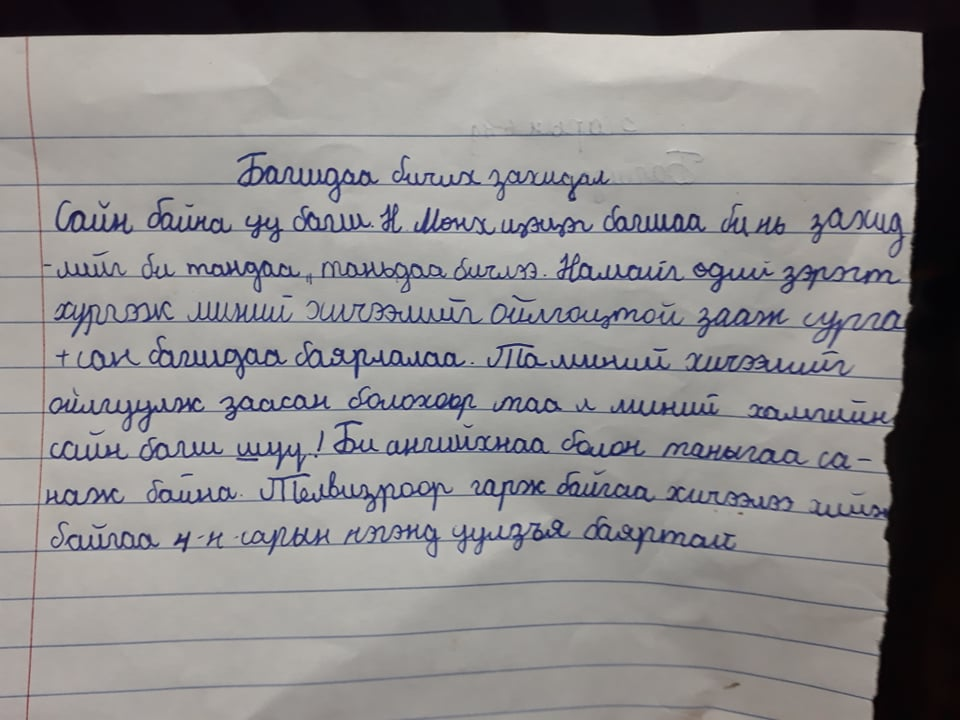 Багшдаа бичих захидал
Сайн байна уу багш. Н Мөнх цэцэг багшаа би нь захид
-лийг би тандаа, таньдаа бичлээ. Намайг өдий зэрэгт
хүргэж миний хичээлийг ойлгоцтой зааж сурга
+сан багшдаа баярлалаа. Та миний хичээлийг
ойлгуулж заасан болохоор таа л миний хамгийн
сайн багш шүү! Би ангийхнаа болон таныгаа са-
наж байна. Телвизроор гарж байгаа хичээлээ хийж
байгаа 4-н сарын нэгэнд уулзъя баяртай